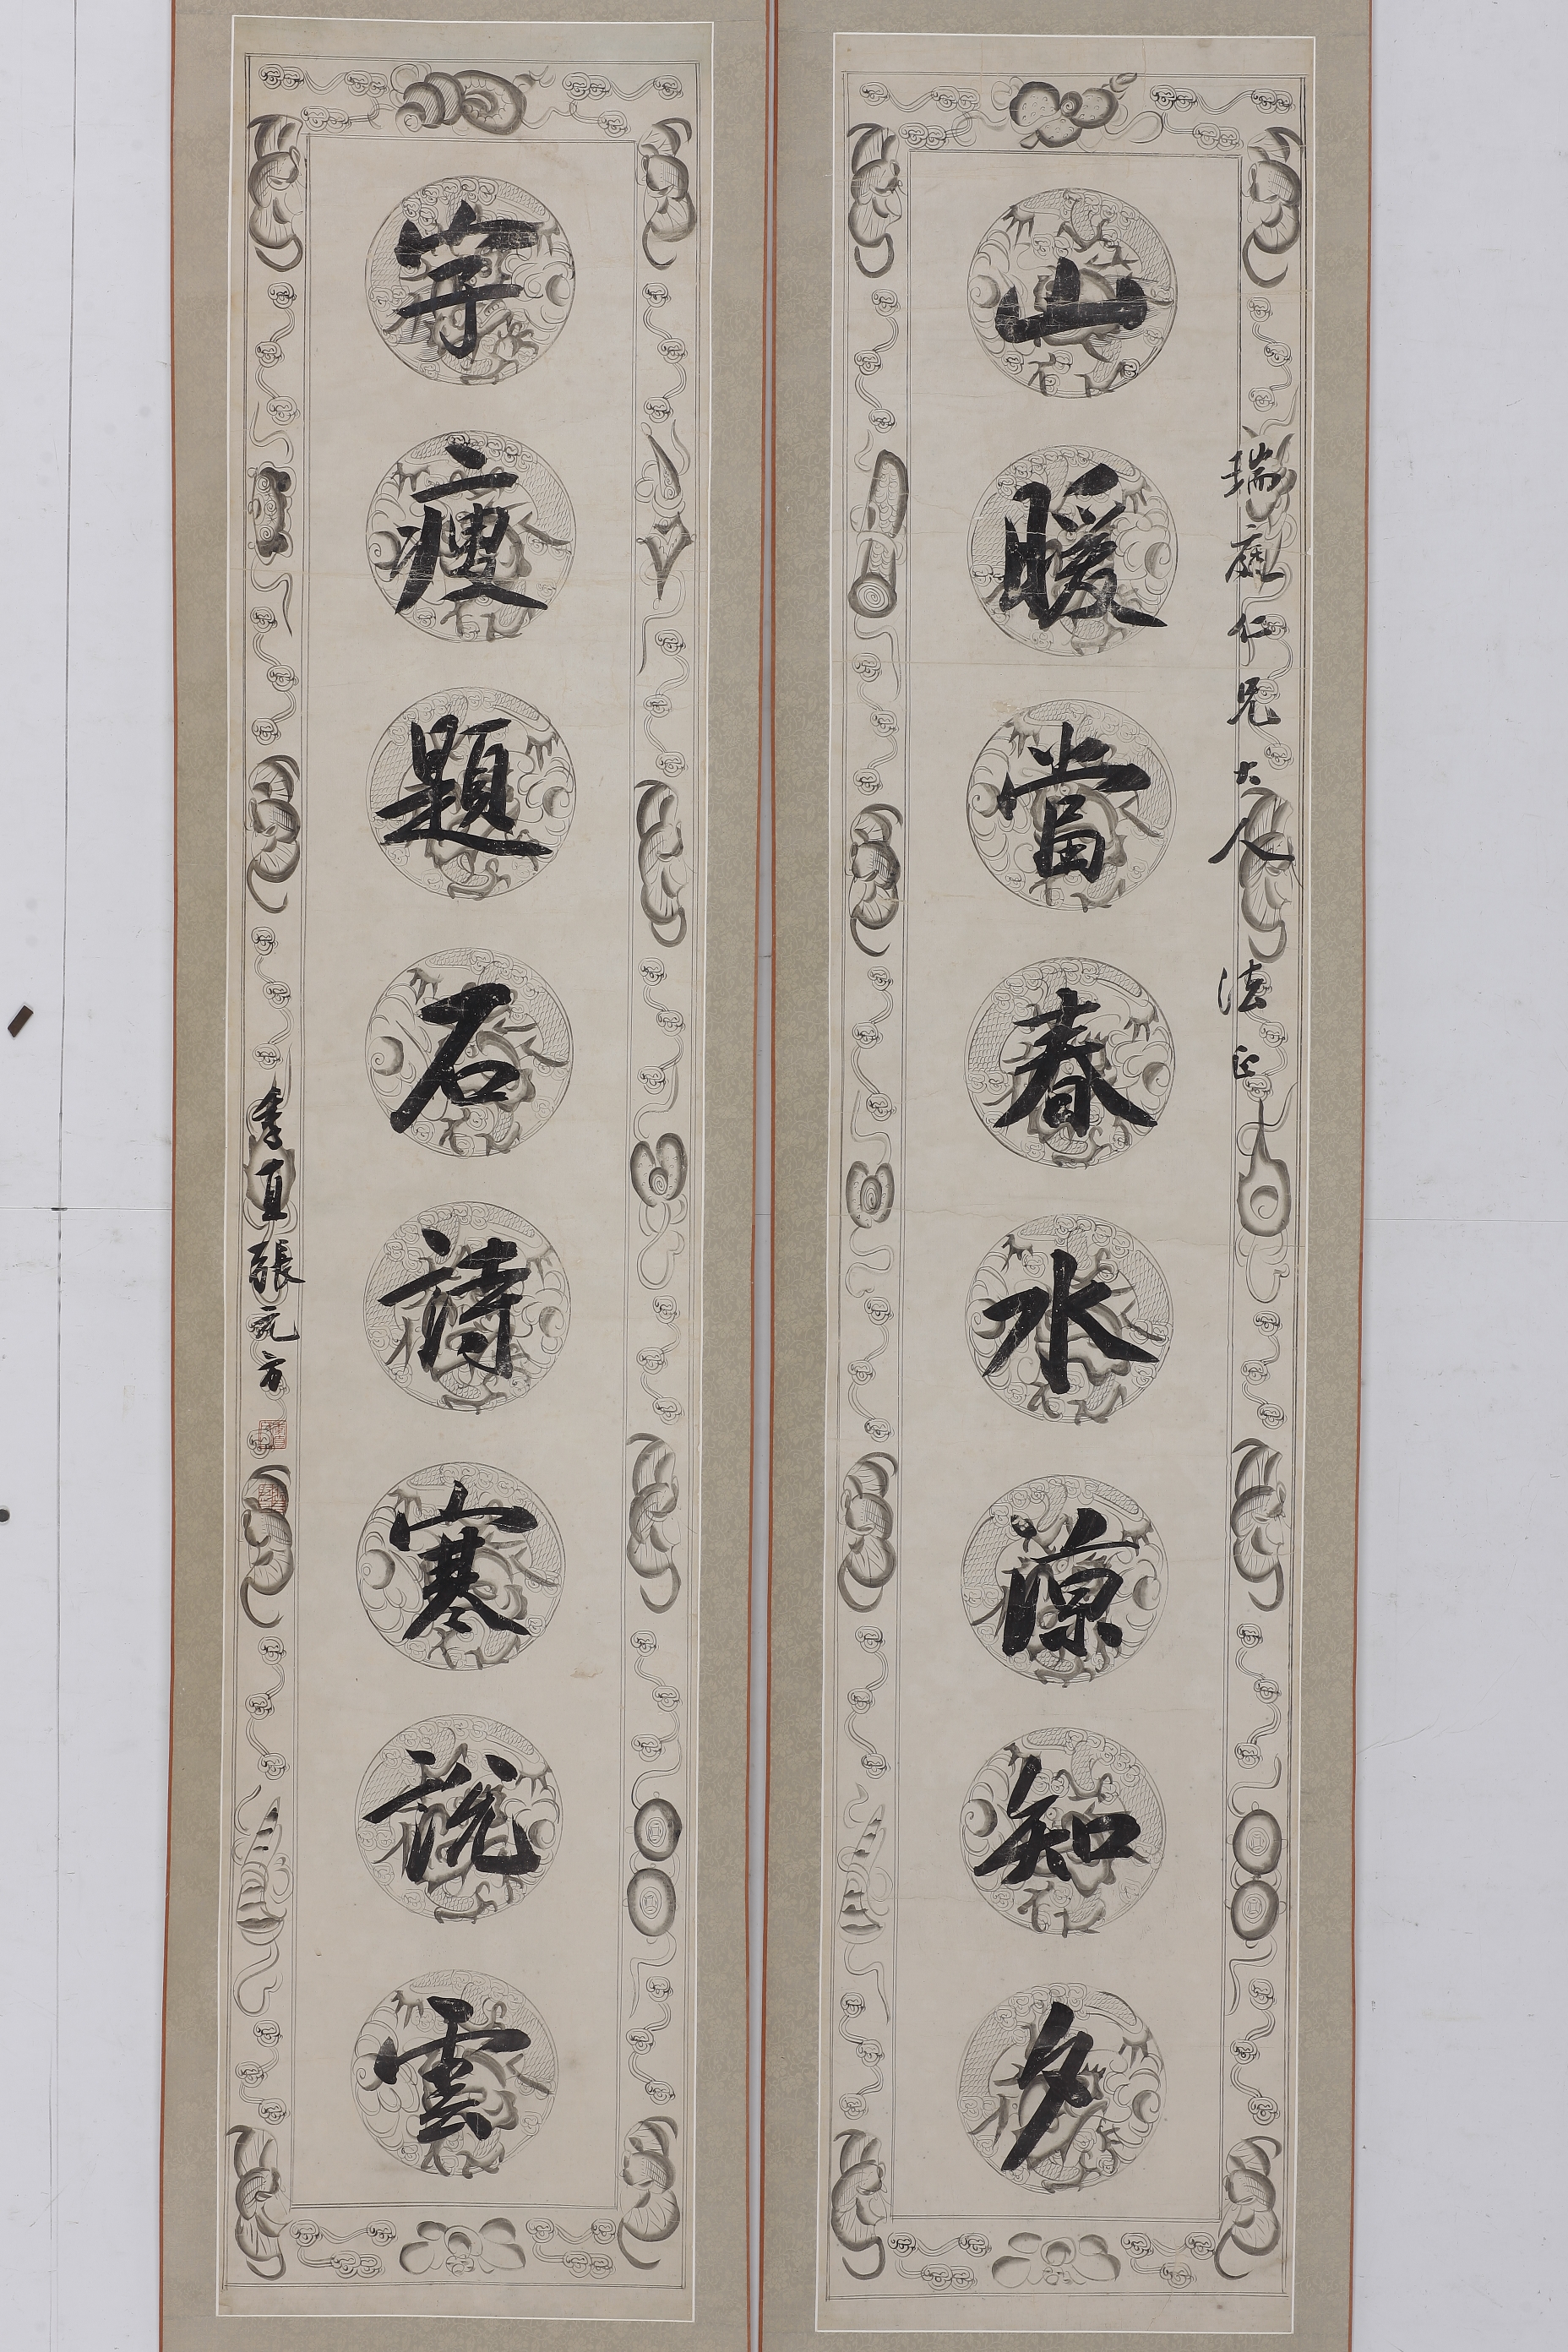 瑞庭仁兄大人法正
山暖當春水涼知夕
字瘦題石詩寒說雲
季直張元方